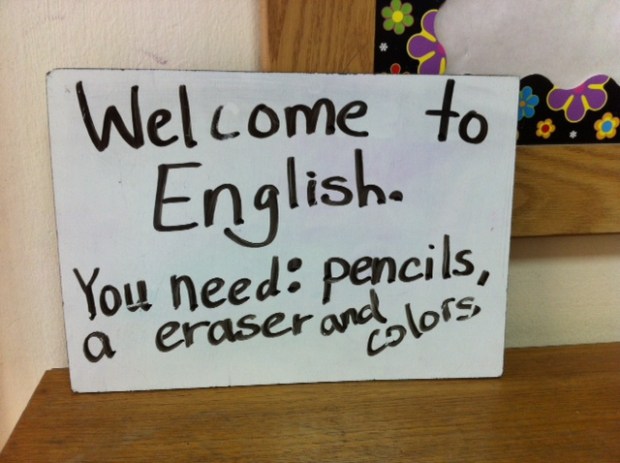 Welcome to
English.
You need: pencils,
a eraser and
colors